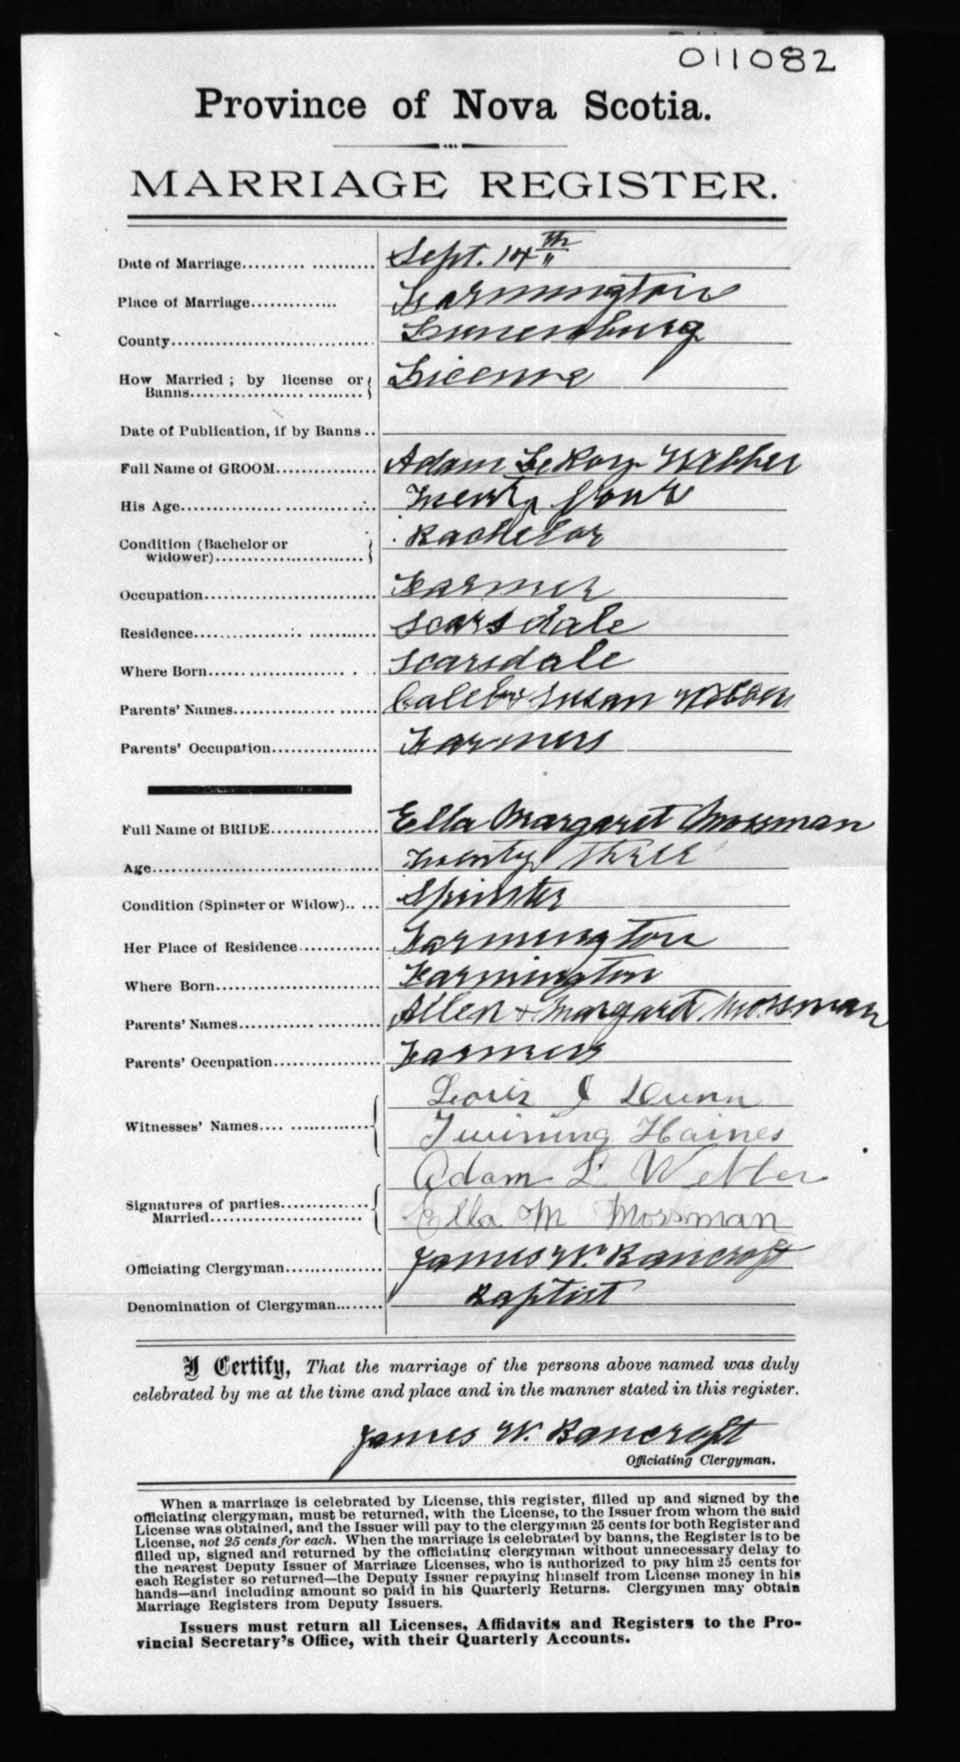 011082
Province of Nova Scotia.
MARRIAGE REGISTER.
Date of Marriage Sept. 14th
Place of Marriage Farmington
County Lunenburg
How Married ; by license or Banns License
Date of Publication, if by Banns
Full Name of GROOM Adam LeRoy Webber
His Age Twenty four
Condition (Bachelor or widower) Bachelor
Occupation Farmer
Residence Scarsdale
Where Born Scarsdale
Parents' Names Caleb & Susan Webber
Parents' Occupation Farmers
Full Name of BRIDE Ella Margaret Mossman
Age Twenty three
Condition (Spinster or Widow) Spinster
Her Place of Residence Farmington
Where Born Farmington
Parents' Names Allen & Margaret Mossman
Parents' Occupation Farmers
Witnesses' Names Louis J Dunn
Twining Haines
Signatures of parties Married Adam L Webber
Ella M Mossman
Officiating Clergyman James W. Bancroft
Denomination of Clergyman Baptist
I Certify, That the marriage of the persons above named was duly
celebrated by me at the time and place and in the manner stated in this register.
James W. Bancroft
Officiating Clergyman.
When a marriage is celebrated by License, this register, filled up and signed by the
officiating clergyman, must be returned, with the License, to the Issuer from whom the said
License was obtained, and the Issuer will pay to the clergyman 25 cents for both Register and
License, not 25 cents for each. When the marriage is celebrated by banns, the Register is to be
filled up, signed and returned by the officiating clergyman without unnecessary delay to
the nearest Deputy Issuer of Marriage Licenses, who is authorized to pay him 25 cents for
each Register so returned—the Deputy Issuer repaying himself from License money in his
hands—and including amount so paid in his Quarterly Returns. Clergymen may obtain
Marriage Registers from Deputy Issuers.
Issuers must return all Licenses, Affidavits and Registers to the Pro-
vincial Secretary's Office, with their Quarterly Accounts.